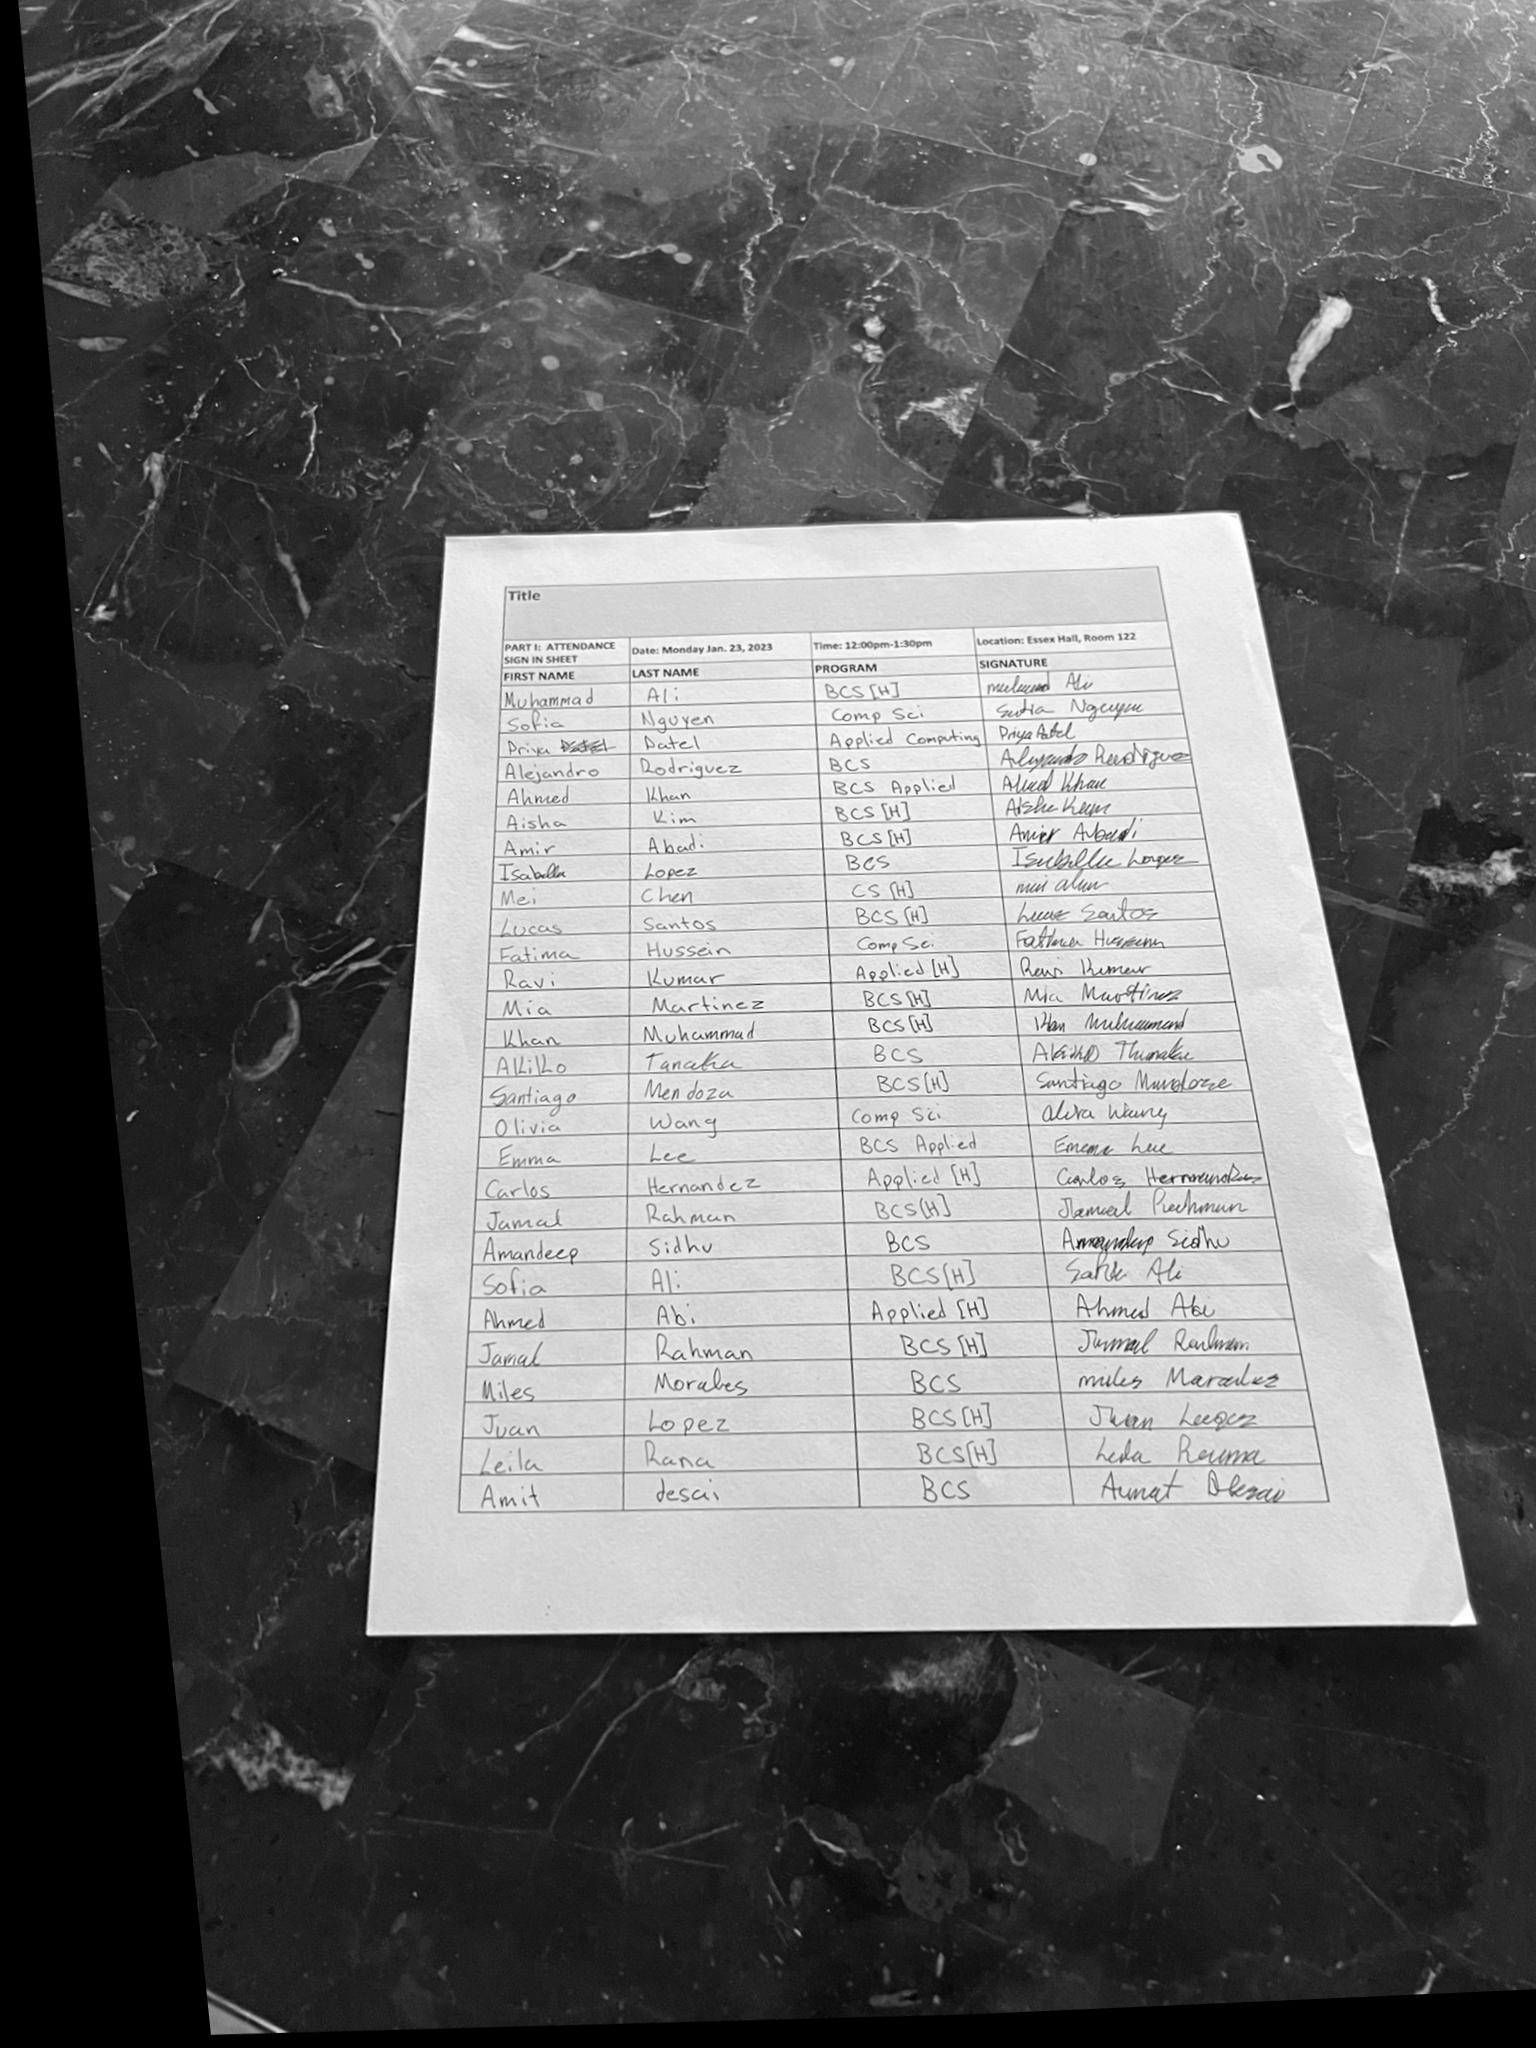 Title
PART I: ATTENDANCE SIGN IN SHEET Date: Monday Jan. 23, 2023 Time: 12:00pm-1:30pm Location: Essex Hall, Room 122
FIRST NAME LAST NAME PROGRAM SIGNATURE
Muhammad Ali BCS [H] Ali
Sofia Nguyen Comp Sci Nguyen
Priya Patel Applied Computing Priya Patel
Alejandro Rodriguez BCS Alejandro Rodriguez
Ahmed Khan BCS Applied Ahmed Khan
Aisha Kim BCS [H] Aisha Kim
Amir Abadi BCS [H] Amir Abadi
Isabella Lopez BCS Isabella Lopez
Mei Chen CS [H] mei chen
Lucas Santos BCS [H] Lucas Santos
Fatima Hussein Comp Sci Fatima Hussein
Ravi Kumar Applied [H] Ravi Kumar
Mia Martinez BCS [H] Mia Martinez
Khan Muhammad BCS [H] Khan Muhammad
Akiko Tanaka BCS Akiko Tanaka
Santiago Mendoza BCS [H] Santiago Mendoza
Olivia Wang Comp Sci Wang
Emma Lee BCS Applied Emma Lee
Carlos Hernandez Applied [H] Carlos Hernandez
Jamal Rahman BCS [H] Jamal Rahman
Amandeep Sidhu BCS Amandeep Sidhu
Sofia Ali BCS [H] Sofia Ali
Ahmed Abi Applied [H] Ahmed Abi
Jamal Rahman BCS [H] Jamal Rahman
Miles Morales BCS miles Morales
Juan Lopez BCS [H] Juan Lopez
Leila Rana BCS [H] Leila Rana
Amit desai BCS Amit Desai